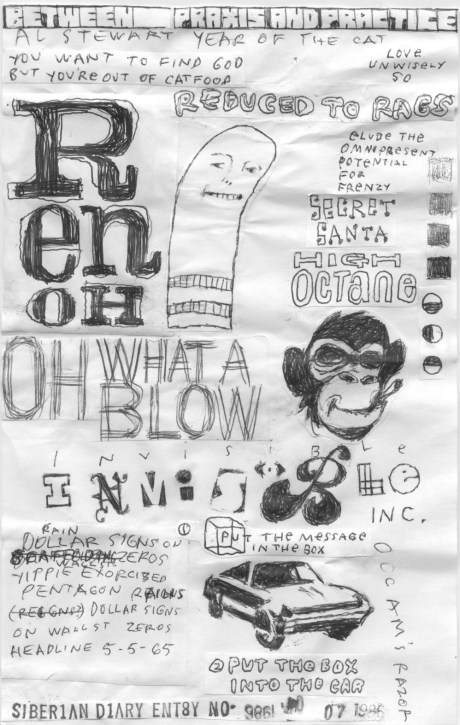 BETWEEN PRAXIS AND PRACTICE
AL STEWART YEAR OF THE CAT
YOU WANT TO FIND GOD
BUT YOU'RE OUT OF CATFOOD
LOVE
UNWISELY
50
REDUCED TO RAGS
Ren
OH
ELUDE THE
OMNIPRESENT
POTENTIAL
FOR
FRENZY
SECRET
SANTA
HIGH
OCTANE
OH WHAT A
BLOW
INVISIBLE
INVIS
INC.
RAIN
DOLLAR SIGNS ON
ZEROS
YIPPIE EXORCISED
PENTAGON
DOLLAR SIGNS
ON WALL ST ZEROS
HEADLINE 5-5-65
PUT THE MESSAGE
IN THE BOX
OCCAM'S RAZOR
2 PUT THE BOX
INTO THE CAR
SIBERIAN DIARY ENT8Y NO.